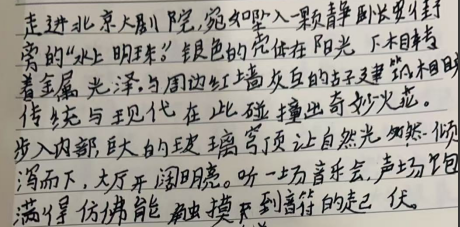 走进北京大剧院,宛如坠入一颗静卧长安街
旁的“水上明珠”。银色的壳体在阳光下
着金属光泽,与周边红墙灰瓦的古建筑相
传统与现代在此碰撞出奇妙火花。
步入内部,巨大的玻璃穹顶让自然光倾
泻而下,大厅开阔明亮。听一场音乐会,声场饱
满得仿佛能触摸到音符的起伏。